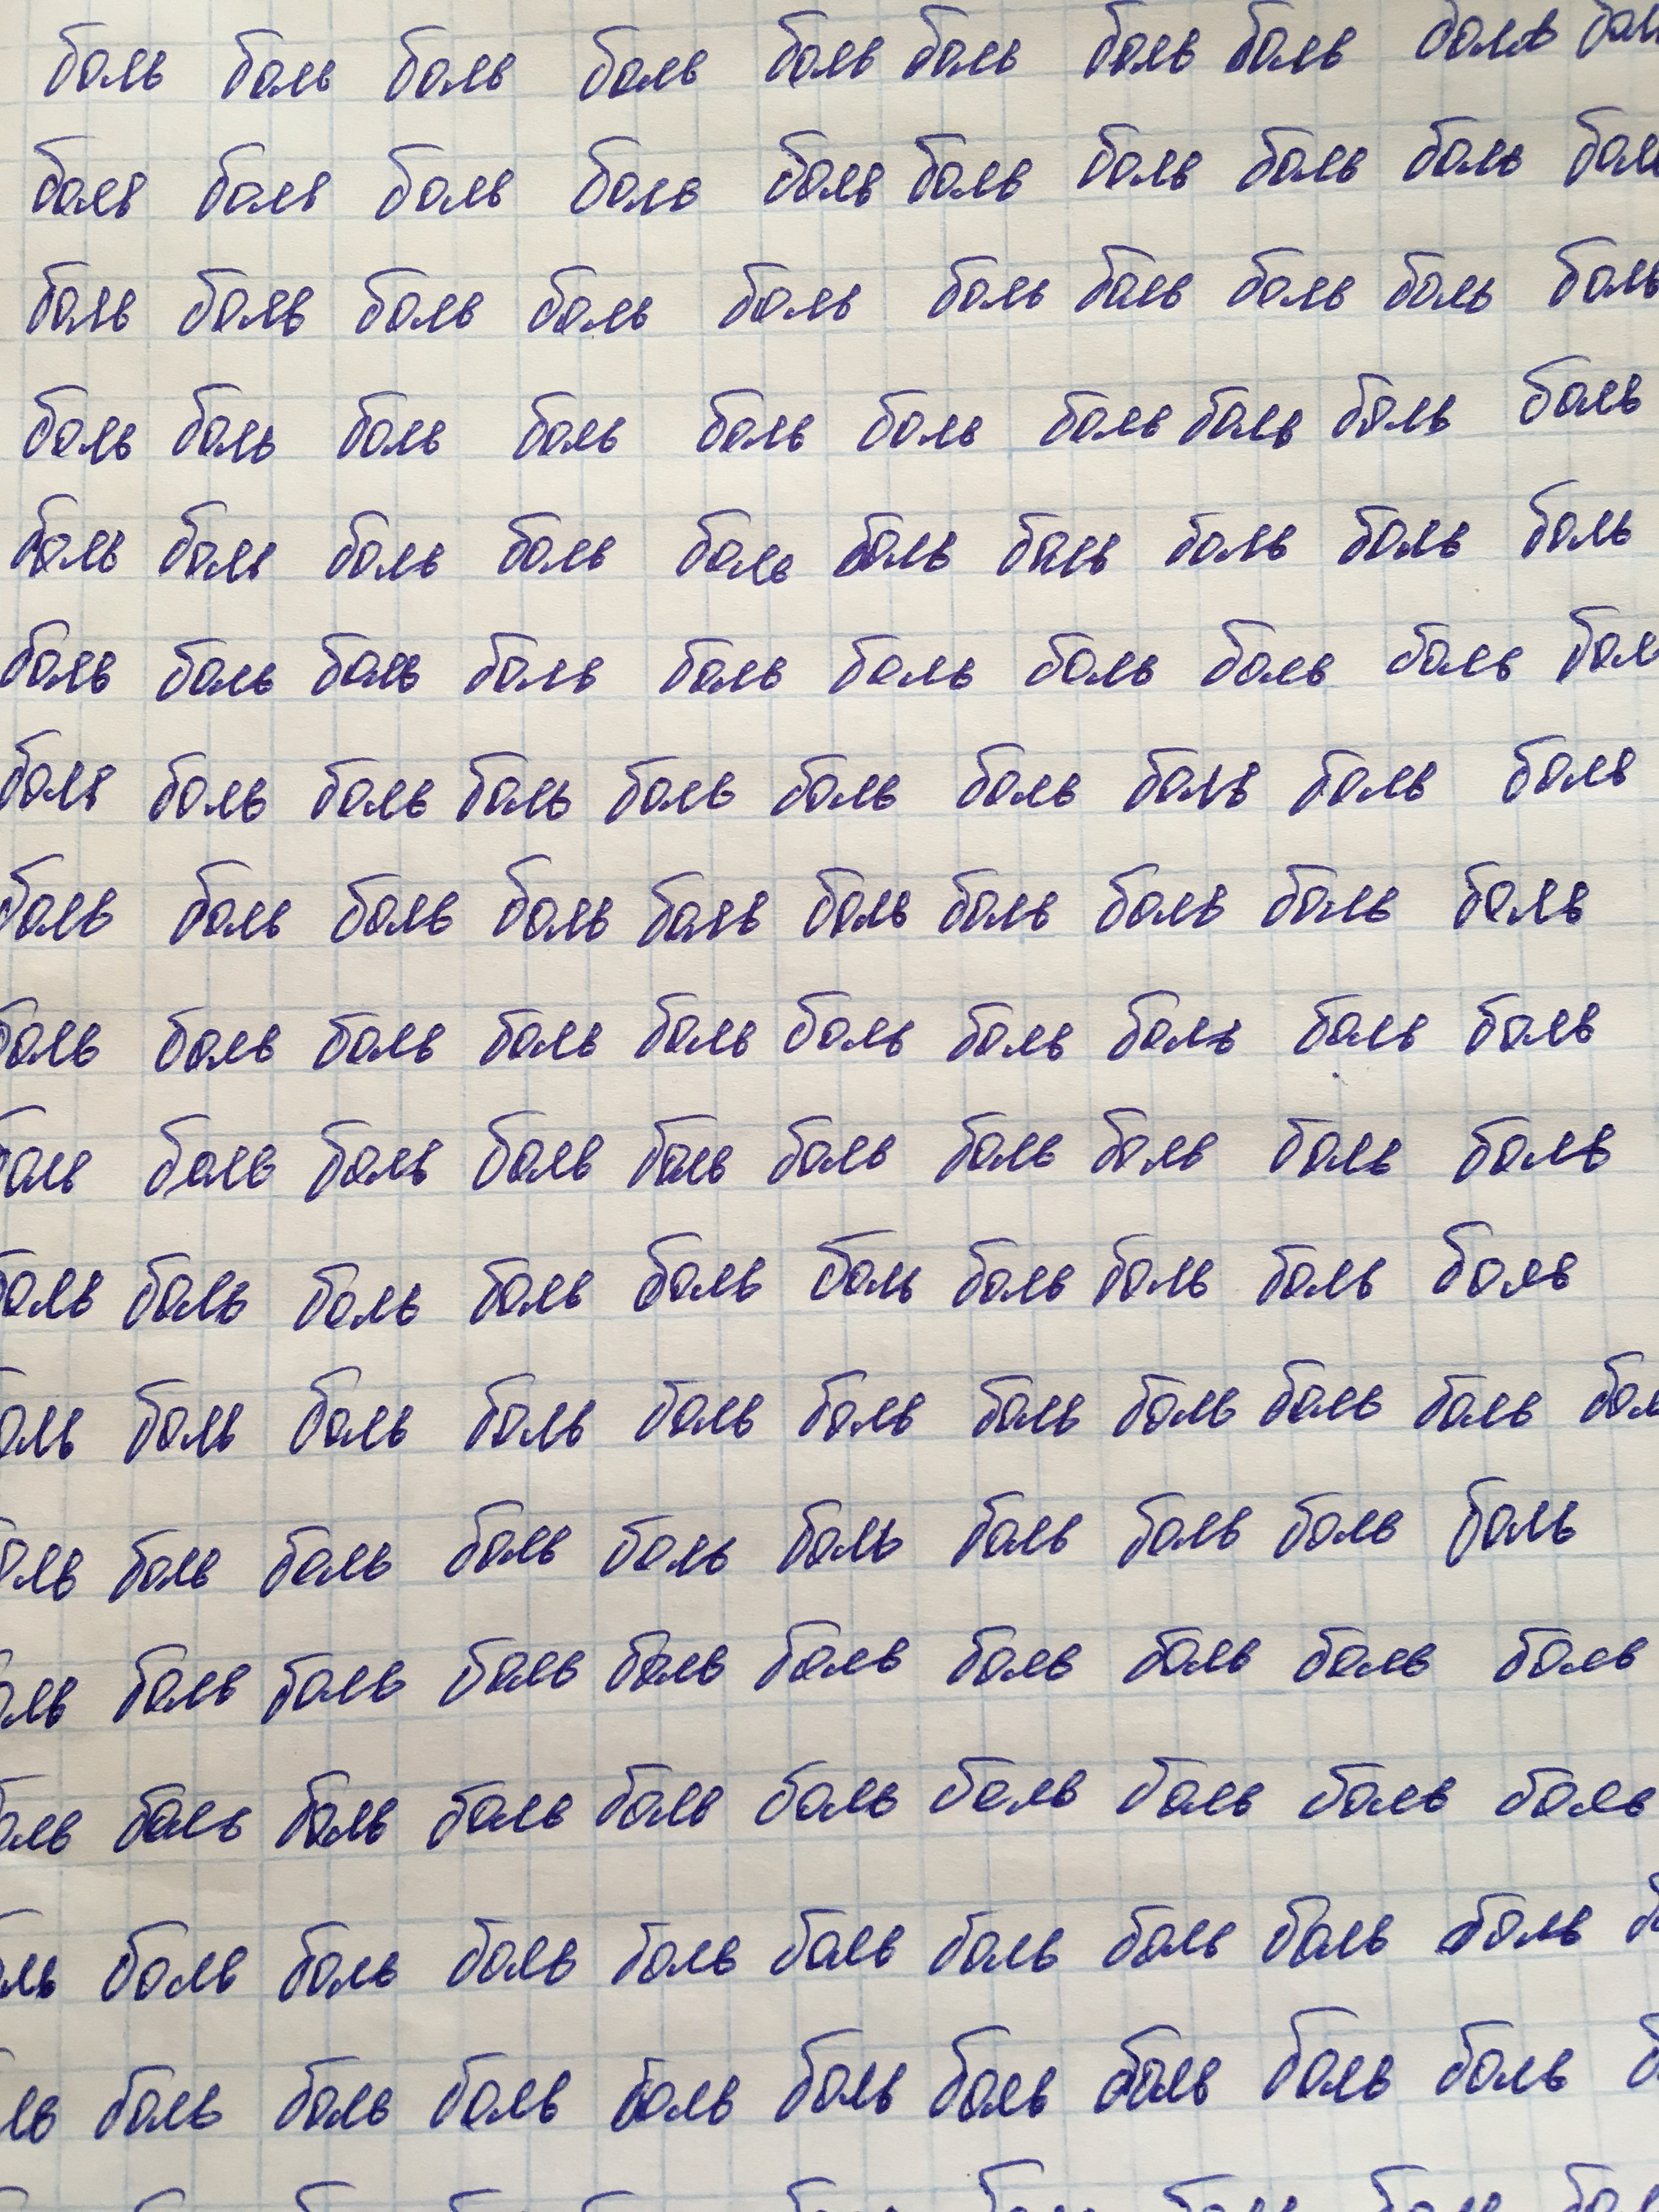 боль боль боль боль боль боль боль боль боль бол
боль боль боль боль боль боль боль боль боль бол
боль боль боль боль боль боль боль боль боль боль
боль боль боль боль боль боль боль боль боль боль
боль боль боль боль боль боль боль боль боль боль
боль боль боль боль боль боль боль боль боль бол
боль боль боль боль боль боль боль боль боль боль
боль боль боль боль боль боль боль боль боль боль
боль боль боль боль боль боль боль боль боль боль
боль боль боль боль боль боль боль боль боль боль
боль боль боль боль боль боль боль боль боль боль
оль боль боль боль боль боль боль боль боль боль бол
оль боль боль боль боль боль боль боль боль боль
оль боль боль боль боль боль боль боль боль боль
оль боль боль боль боль боль боль боль боль боль
оль боль боль боль боль боль боль боль боль боль б
ль боль боль боль боль боль боль боль боль боль б